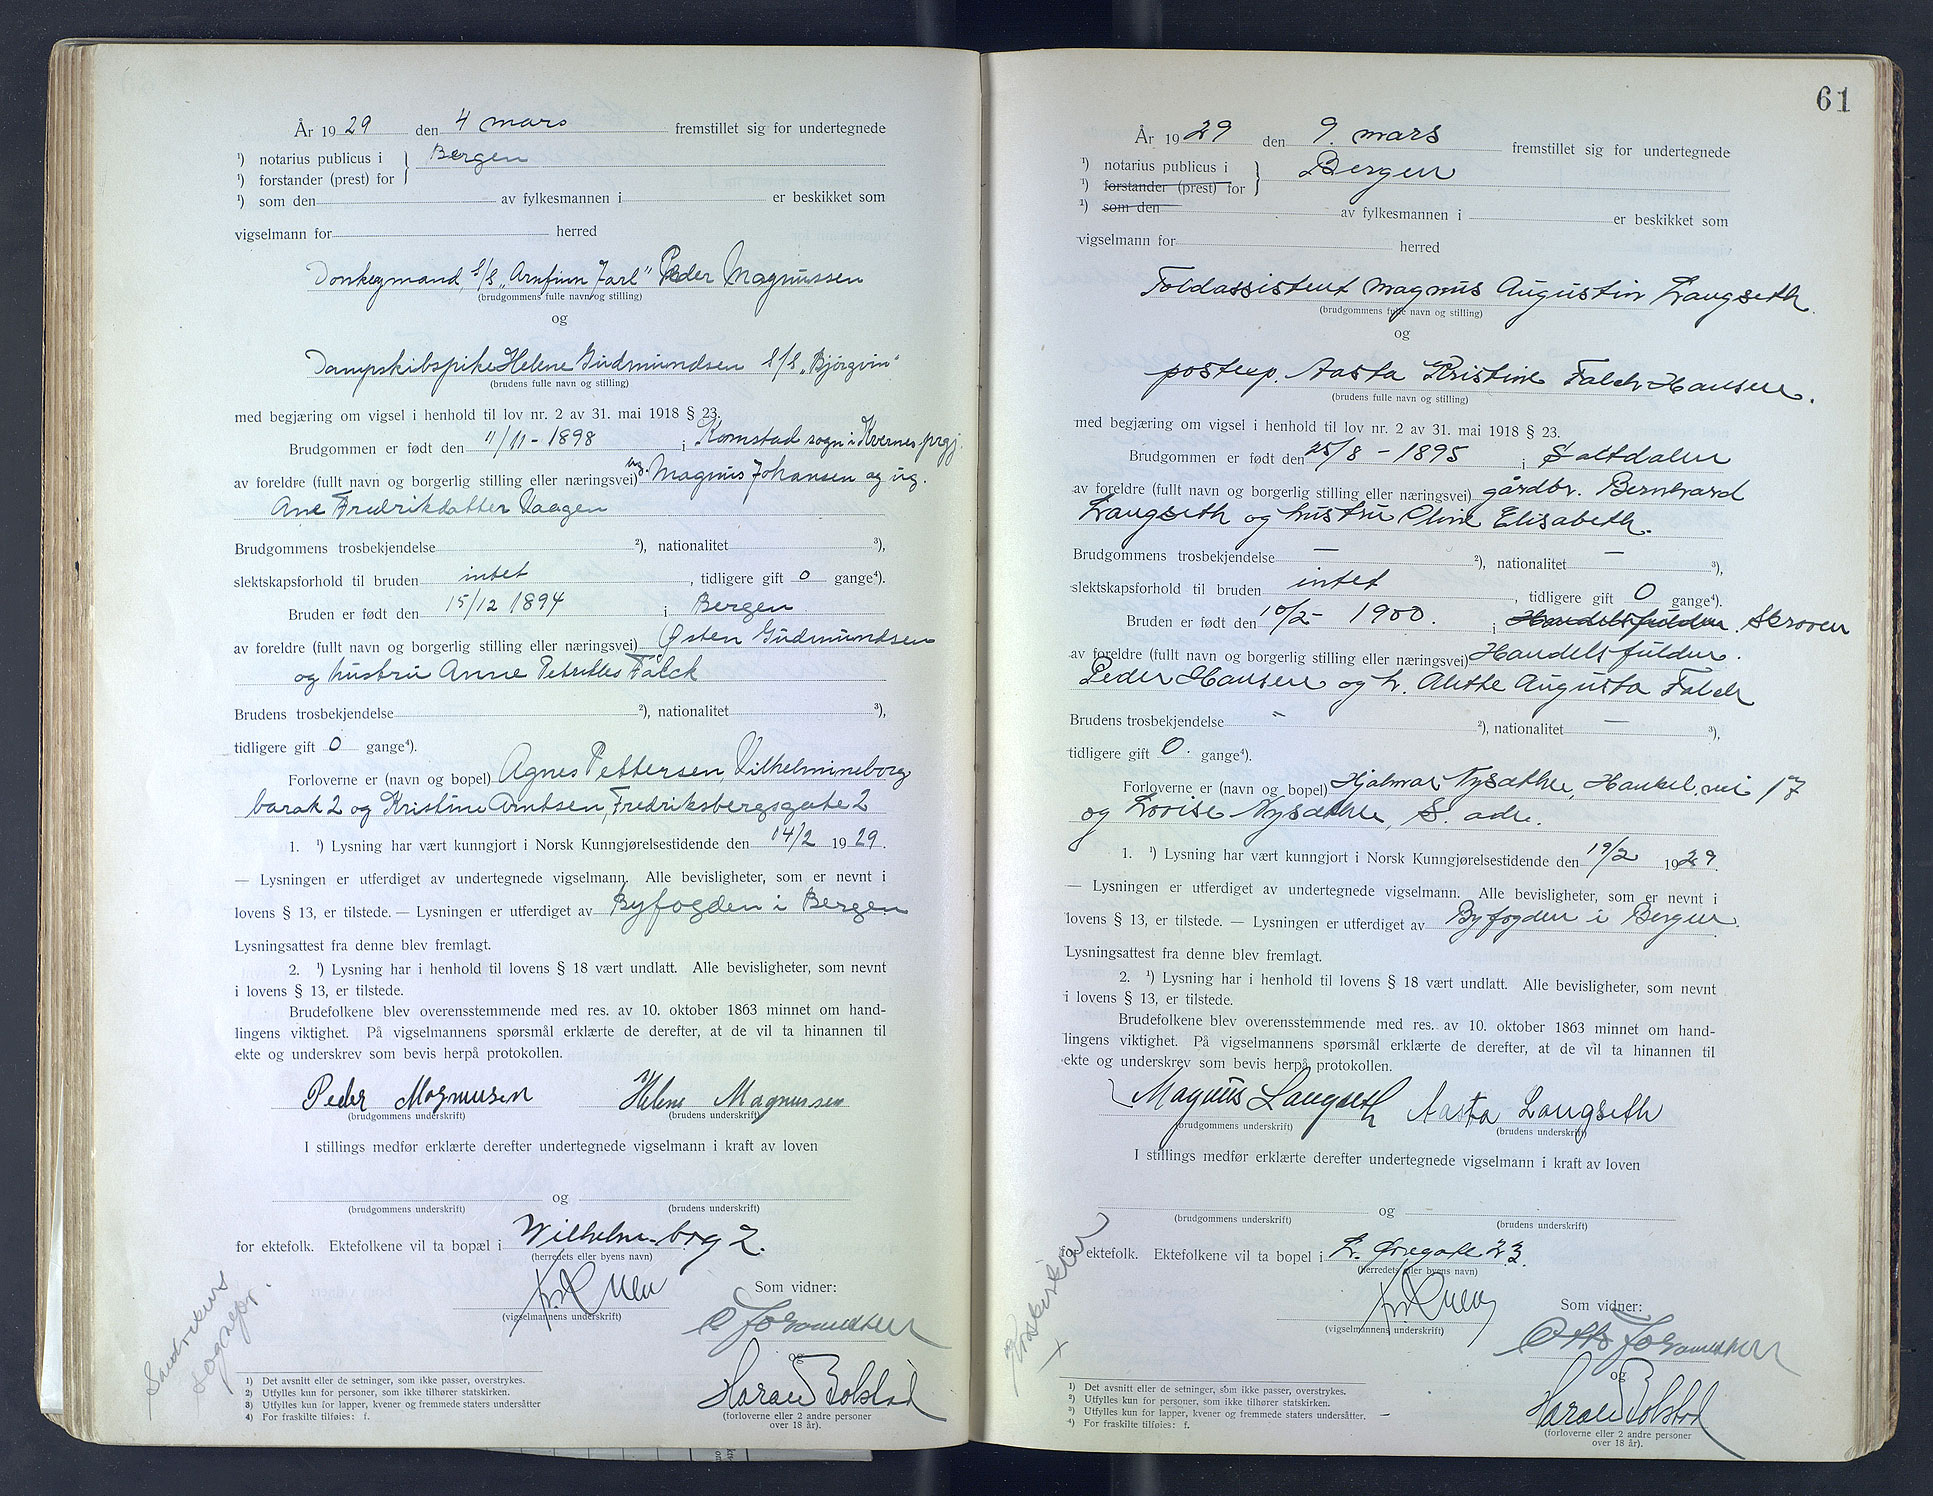 År 1929 den 4 mars fremstillet sig for undertegnede
¹) notarius publicus i } Bergen
¹) forstander (prest) for
¹) som den av fylkesmannen i er beskikket som
vigselmann for herred
Donkeymand, S/S „Arnfinn Jarl" Peder Magnussen
(brudgommens fulle navn og stilling)
og
Dampskibspike Helene Gudmundsen S/S „Bjørgvin"
(brudens fulle navn og stilling)
med begjæring om vigsel i henhold til lov nr. 2 av 31. mai 1918 § 23.
Brudgommen er født den 11/11 - 1898 i Kornstad sogn i Kvernes prgj.
av foreldre (fullt navn og borgerlig stilling eller næringsvei) ug. Magnus Johansen og ug.
Ane Fredrikdatter Vaagen
Brudgommens trosbekjendelse ²), nationalitet ³),
slektskapsforhold til bruden intet, tidligere gift 0 gange⁴).
Bruden er født den 15/12 1894 i Bergen
av foreldre (fullt navn og borgerlig stilling eller næringsvei) Østen Gudmundsen
og hustru Anne Petrikke Falck
Brudens trosbekjendelse ²), nationalitet ³),
tidligere gift 0 gange⁴).
Forloverne er (navn og bopel) Agnes Pettersen, Vilhelmineborg
barak 2 og Kristine Arntsen, Fredriksbergsgate 2
1. ¹) Lysning har vært kunngjort i Norsk Kunngjørelsestidende den 14/2 1929.
— Lysningen er utferdiget av undertegnede vigselmann. Alle bevisligheter, som er nevnt i
lovens § 13, er tilstede. — Lysningen er utferdiget av Byfogden i Bergen
Lysningsattest fra denne blev fremlagt.
2. ¹) Lysning har i henhold til lovens § 18 vært undlatt. Alle bevisligheter, som nevnt
i lovens § 13, er tilstede.
Brudefolkene blev overensstemmende med res. av 10. oktober 1863 minnet om hand-
lingens viktighet. På vigselmannens spørsmål erklærte de derefter, at de vil ta hinannen til
ekte og underskrev som bevis herpå protokollen.
Peder Magnussen Helene Magnussen
(brudgommens underskrift) (brudens underskrift)
I stillings medfør erklærte derefter undertegnede vigselmann i kraft av loven
og
(brudgommens underskrift) (brudens underskrift)
for ektefolk. Ektefolkene vil ta bopæl i Wilhelm.borg 2.
(herredets eller byens navn)
Som vidner:
(vigselmannens underskrift)
og
Harald Bolstad
(forloverne eller 2 andre personer
over 18 år).
Sandvikens
sognepr.
1) Det avsnitt eller de setninger, som ikke passer, overstrykes.
2) Utfylles kun for personer, som ikke tilhører statskirken.
3) Utfylles kun for lapper, kvener og fremmede staters undersåtter
4) For fraskilte tilføies: f.
61
År 1929 den 9. mars fremstillet sig for undertegnede
¹) notarius publicus i } Bergen
¹) forstander (prest) for
¹) som den av fylkesmannen i er beskikket som
vigselmann for herred
Toldassistent Magnus Augustin Langseth.
(brudgommens fulle navn og stilling)
og
postexp. Aasta Kristine Falch-Hansen.
(brudens fulle navn og stilling)
med begjæring om vigsel i henhold til lov nr. 2 av 31. mai 1918 § 23.
Brudgommen er født den 25/8 - 1895 i Saltdalen
av foreldre (fullt navn og borgerlig stilling eller næringsvei) gårdbr. Bernhard
Langseth og hustru Oline Elisabeth.
Brudgommens trosbekjendelse — ²), nationalitet — ³),
slektskapsforhold til bruden intet, tidligere gift 0 gange⁴).
Bruden er født den 10/2 - 1900. i Handelsfuldm. Skroven
av foreldre (fullt navn og borgerlig stilling eller næringsvei) Handelsfuldm.
Peder Hansen og h. Alethe Augusta Falch
Brudens trosbekjendelse - ²), nationalitet — ³),
tidligere gift 0. gange⁴).
Forloverne er (navn og bopel) Hjalmar Nysæther, Haukel.vei 17
og Lovise Nysæther, S. adr.
1. ¹) Lysning har vært kunngjort i Norsk Kunngjørelsestidende den 19/2 1929.
— Lysningen er utferdiget av undertegnede vigselmann. Alle bevisligheter, som er nevnt i
lovens § 13, er tilstede. — Lysningen er utferdiget av Byfogden i Bergen.
Lysningsattest fra denne blev fremlagt.
2. ¹) Lysning har i henhold til lovens § 18 vært undlatt. Alle bevisligheter, som nevnt
i lovens § 13, er tilstede.
Brudefolkene blev overensstemmende med res. av 10. oktober 1863 minnet om hand-
lingens viktighet. På vigselmannens spørsmål erklærte de derefter, at de vil ta hinannen til
ekte og underskrev som bevis herpå protokollen.
Magnus Langseth Aasta Langseth
(brudgommens underskrift) (brudens underskrift)
I stillings medfør erklærte derefter undertegnede vigselmann i kraft av loven
og
(brudgommens underskrift) (brudens underskrift)
for ektefolk. Ektefolkene vil ta bopel i L. Øregate 23.
(herredets eller byens navn)
Som vidner:
(vigselmannens underskrift)
Otto
og
Harald Bolstad
(forloverne eller 2 andre personer
over 18 år).
1) Det avsnitt eller de setninger, som ikke passer, overstrykes.
2) Utfylles kun for personer, som ikke tilhører statskirken.
3) Utfylles kun for lapper, kvener og fremmede staters undersåtter. —
4) For fraskilte tilføies: f.